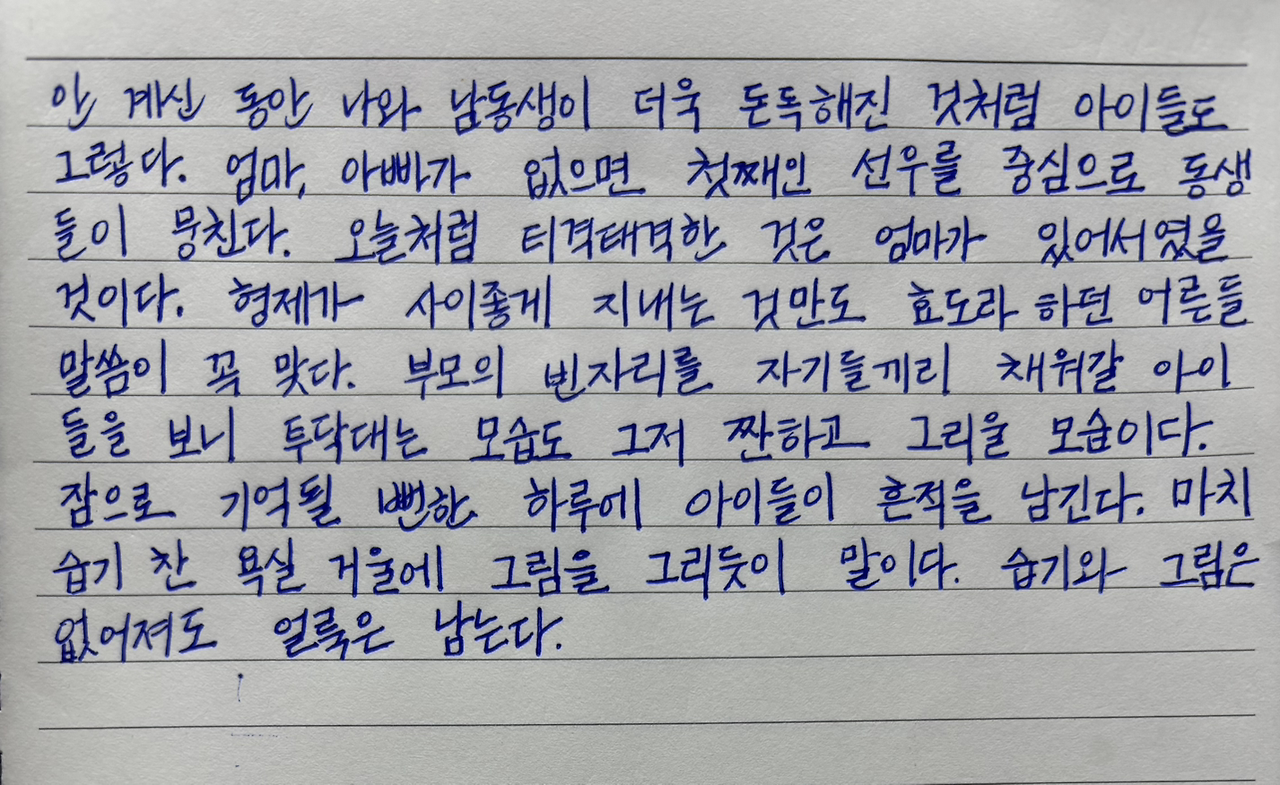 안 계신 동안 나와 남동생이 더욱 돈독해진 것처럼 아이들도
그렇다. 엄마, 아빠가 없으면 첫째인 선우를 중심으로 동생
들이 뭉친다. 오늘처럼 티격태격한 것은 엄마가 있어서였을
것이다. 형제가 사이좋게 지내는 것만도 효도라 하던 어른들
말씀이 꼭 맞다. 부모의 빈자리를 자기들끼리 채워갈 아이
들을 보니 투닥대는 모습도 그저 짠하고 그리울 모습이다.
잠으로 기억될 뻔한 하루에 아이들이 흔적을 남긴다. 마치
습기 찬 욕실 거울에 그림을 그리듯이 말이다. 습기와 그림은
없어져도 얼룩은 남는다.